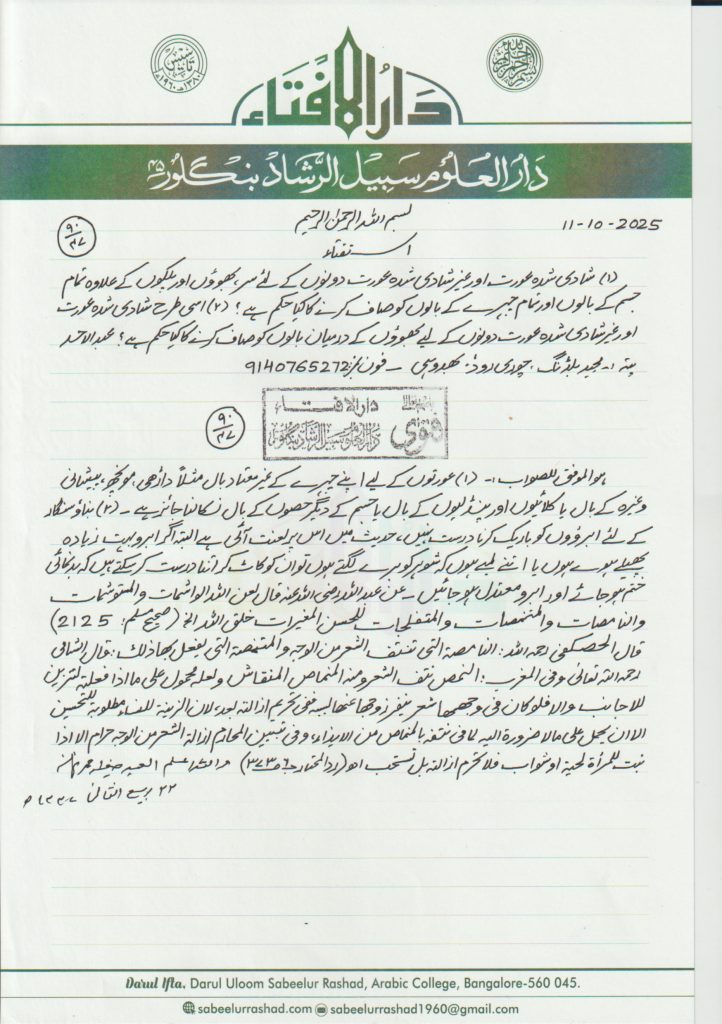 دَارُ الإفتَاء
تاسیس
۱۳۸۰ھ ۱۹۶۰ء
دَارُ العلُوم سَبیل الرَّشاد بنگلور ۴۵
بسم اللہ الرحمن الرحیم
11-10-2025
۹۰/۴۷
استفتاء
(۱) شادی شدہ عورت اور غیر شادی شدہ عورت دونوں کے لئے سر، بھوؤں اور پلکوں کے علاوہ تمام
جسم کے بالوں اور تمام چہرے کے بالوں کو صاف کرنے کا کیا حکم ہے؟ (۲) اسی طرح شادی شدہ عورت
اور غیر شادی شدہ عورت دونوں کے لیے بھوؤں کے درمیان بالوں کو صاف کرنے کا کیا حکم ہے؟ عبد الاحد
پتہ:۔ مجید بلڈنگ، چوری روڈ، بھدوہی ۔ فون نمبر: 9140765272
فتویٰ
دار الافتاء
دار العلوم سبیل الرشاد بنگلور
۹۰/۴۷
ہو الموفق للصواب:۔ (۱) عورتوں کے لیے اپنے چہرے کے غیر معتاد بال مثلاً داڑھی، مونچھ، پیشانی
وغیرہ کے بال یا کلائیوں اور پنڈلیوں کے بال یا جسم کے دیگر حصوں کے بال نکالنا جائز ہے ۔ (۲) بناؤ سنگار
کے لئے ابروؤں کو باریک کرنا درست نہیں، حدیث میں اس پر لعنت آئی ہے البتہ اگر ابرو بہت زیادہ
پھیلے ہوئے ہوں یا اتنے لمبے ہوں کہ شوہر کو برے لگتے ہوں تو ان کو کاٹ کر اتنا درست کر سکتے ہیں کہ بدنمائی
ختم ہو جائے اور ابرو معتدل ہو جائیں ۔ عن عبد اللہ رضی اللہ عنہ قال لعن اللہ الواشمات والمتوشمات
والنامصات والمتنمصات والمتفلجات للحسن المغیرات خلق اللہ الخ (صحیح مسلم: 2125)
قال الحصکفی رحمہ اللہ: النامصۃ التی تنتف الشعر من الوجہ والمتنمصۃ التی یفعل بہا ذلک: قال الشامی
رحمہ اللہ تعالیٰ وفی المغرب: النمص نتف الشعر ومنہ المنماص المنقاش ولعلہ محمول علی ما اذا فعلتہ لتتزین
للاجانب والا فلو کان فی وجہہا شعر ینفر زوجہا عنہا بسببہ ففی تحریم ازالتہ بعد، لان الزینۃ للنساء مطلوبۃ للتحسین
الا ان یحمل علی ما لا ضرورۃ الیہ لما فی نتفہ بالمنماص من الایذاء، وفی تبیین المحارم ازالۃ الشعر من الوجہ حرام الا اذا
نبت للمرأۃ لحیۃ او شوارب فلا تحرم ازالتہ بل تستحب اھ (رد المحتار ج ۶ ص ۳۷۳) واللہ اعلم العبد
۲۲ ربیع الثانی
Darul Ifta. Darul Uloom Sabeelur Rashad, Arabic College, Bangalore-560 045.
sabeelurrashad.com sabeelurrashad1960@gmail.com